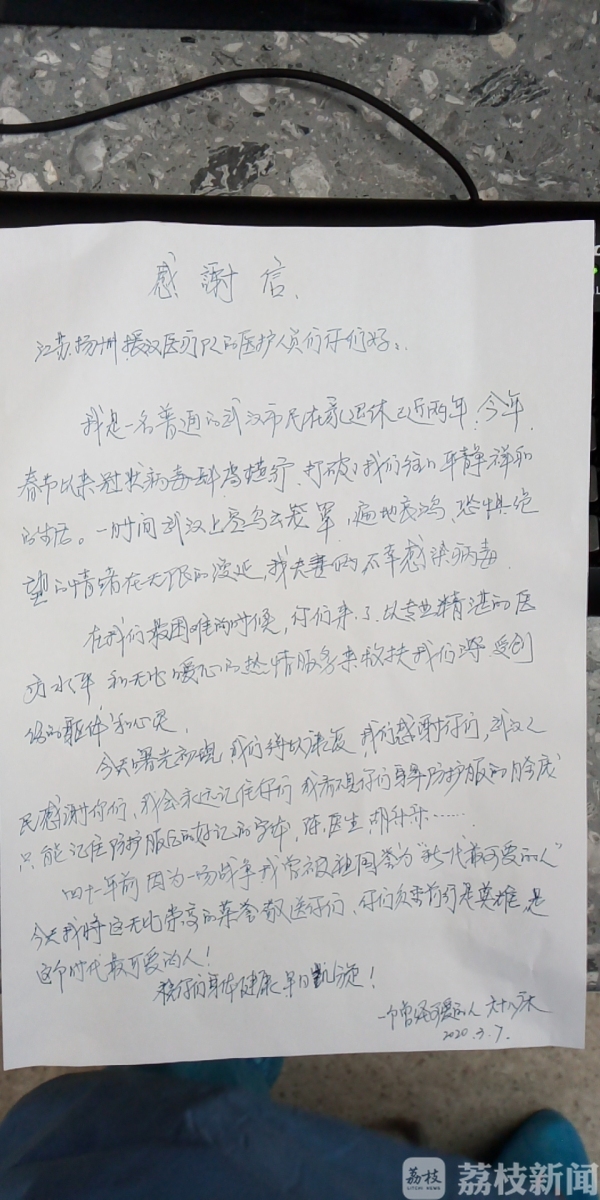 感謝信、
江苏扬州援汉医疗队的医护人员们你们好：
我是一名普通的武汉市民在家退休已近两年.今年
春节以来冠状病毒肆虐横行、打破了我们往日平静祥和
的生活。一时间武汉上空乌云笼罩,遍地哀鸿、恐惧绝
望的情绪在无限的漫延,我夫妻俩不幸感染病毒.
在我们最困难的时候,你们来了.以专业精湛的医
疗水平和无比暖心的热情服务来救扶我们 受创
伤的躯体和心灵.
今天曙光初现 我们得以康复 我们感谢你们,武汉人
民感谢你们、我会永远记住你们 我看不见你们身穿防护服的
只能记住防护服后面好记的字体,陈医生、胡
四十年前因为一场战争我曾被祖国誉为“新一代最可爱的人”
今天我将这无比崇高的荣誉敬送你们、你们负重前行是英雄,是
这个时代最可爱的人!
祝你们身体健康 早日凯旋!
一个曾经可爱的人
2020.3.7.
荔枝
LITCHI NEWS
荔枝新闻